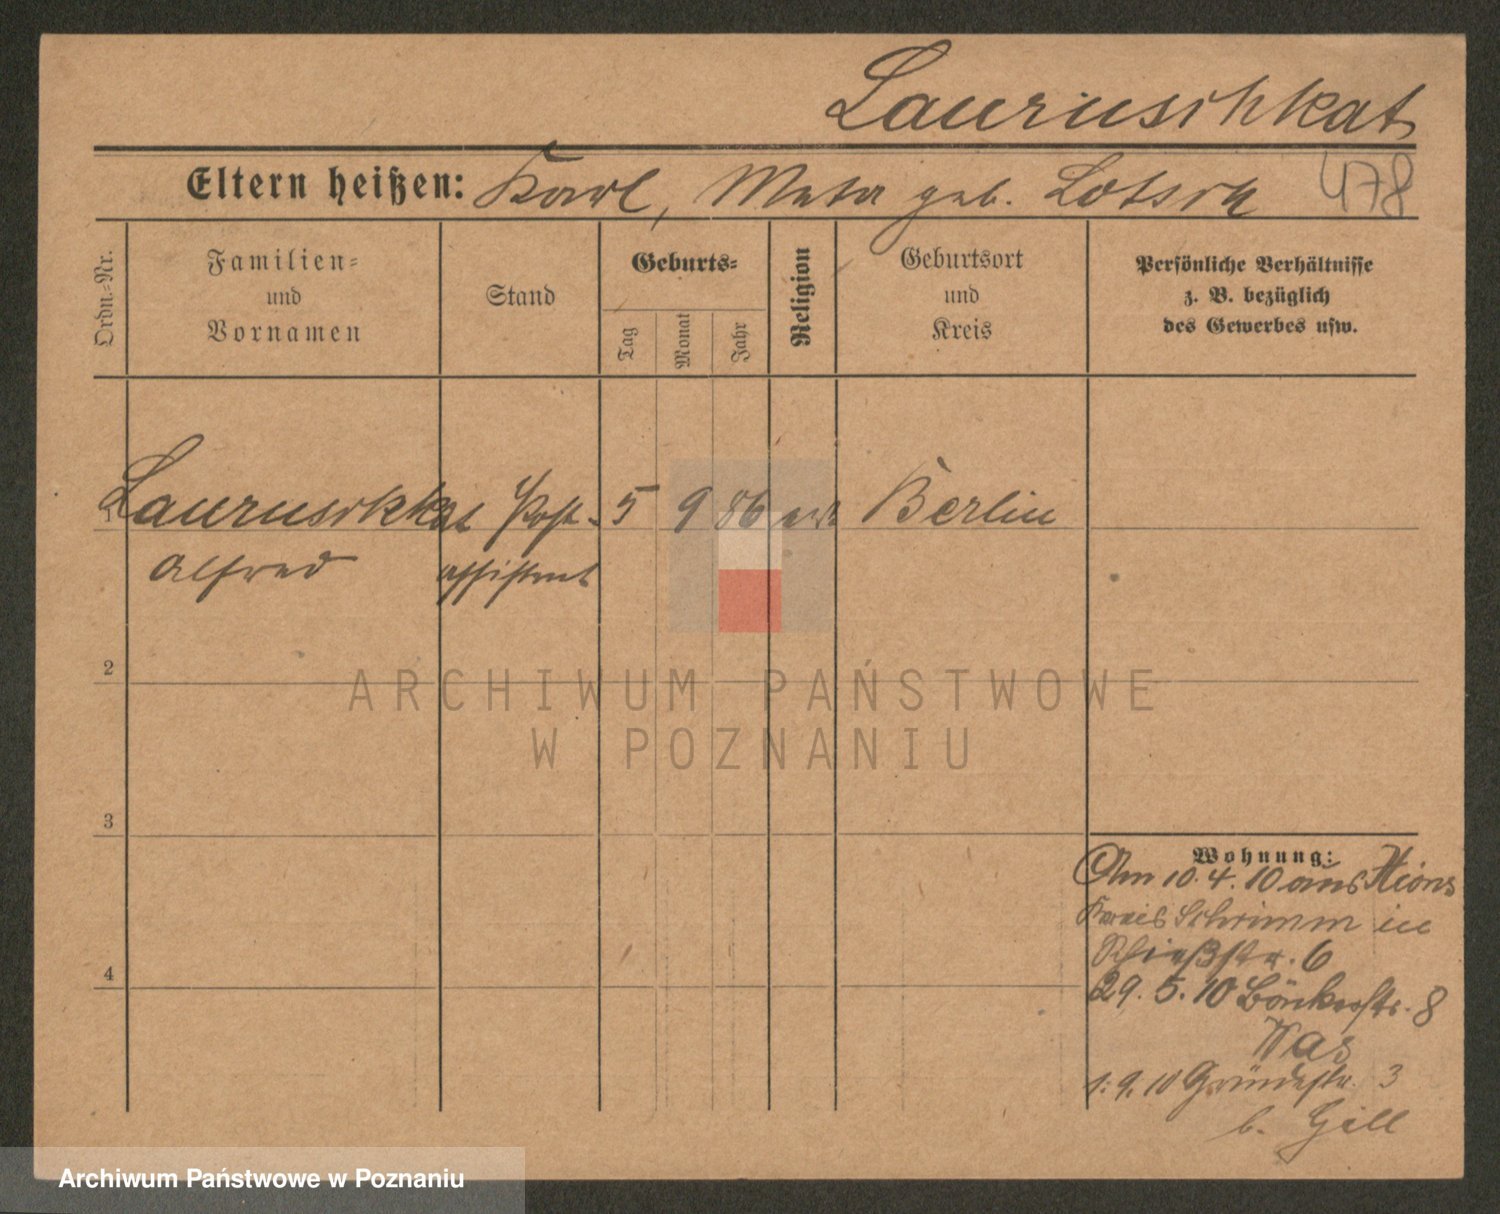 Lauruschkat
Eltern heißen: Karl, Meta geb. Lotsch 478
Ordn.-Nr.
Familien-
und
Vornamen
Stand
Geburts-
Tag
Monat
Jahr
Religion
Geburtsort
und
Kreis
Persönliche Verhältnisse
z. B. bezüglich
des Gewerbes usw.
1 Lauruschkat Post- 5 9 86 Berlin
Alfred assistent
2
3
4
Wohnung:
Am 10.4.10 aus Xions
Kreis Schrimm in
6
29.5.10 8
1.9.10 3
b. Gill
ARCHIWUM PAŃSTWOWE
W POZNANIU
Archiwum Państwowe w Poznaniu